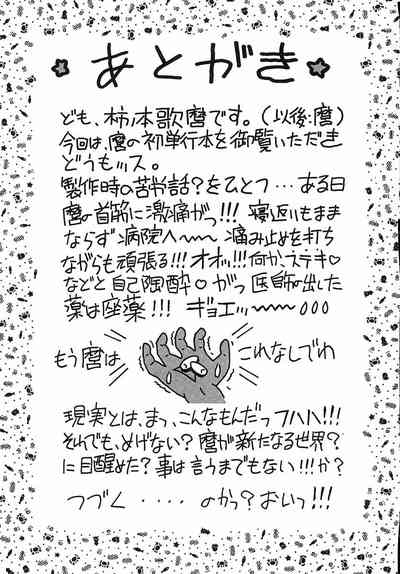 あとがき
ども、柿ノ本歌麿です。(以後:麿)
今回は、麿の初単行本を御覧いただき
どうもッス。
製作時の苦労話?をひとつ…ある日
麿の首筋に激痛がっ!!! 寝返いもまま
ならず病院へ〜〜 痛み止めを打ち
ながらも頑張る!!!オオッ!!何かステキ♡
などと自己陶酔♡がっ医師が出した
薬は座薬!!! ギョエッ〜〜〜ooo
もう麿は
これなしでわ
現実とは、まっ、こんなもんだっフハハ!!!
それでも、めげない?麿が新たなる世界?
に目醒めた?事は言うまでもない!!!か?
つづく・・・・のかっ?おいっ!!!